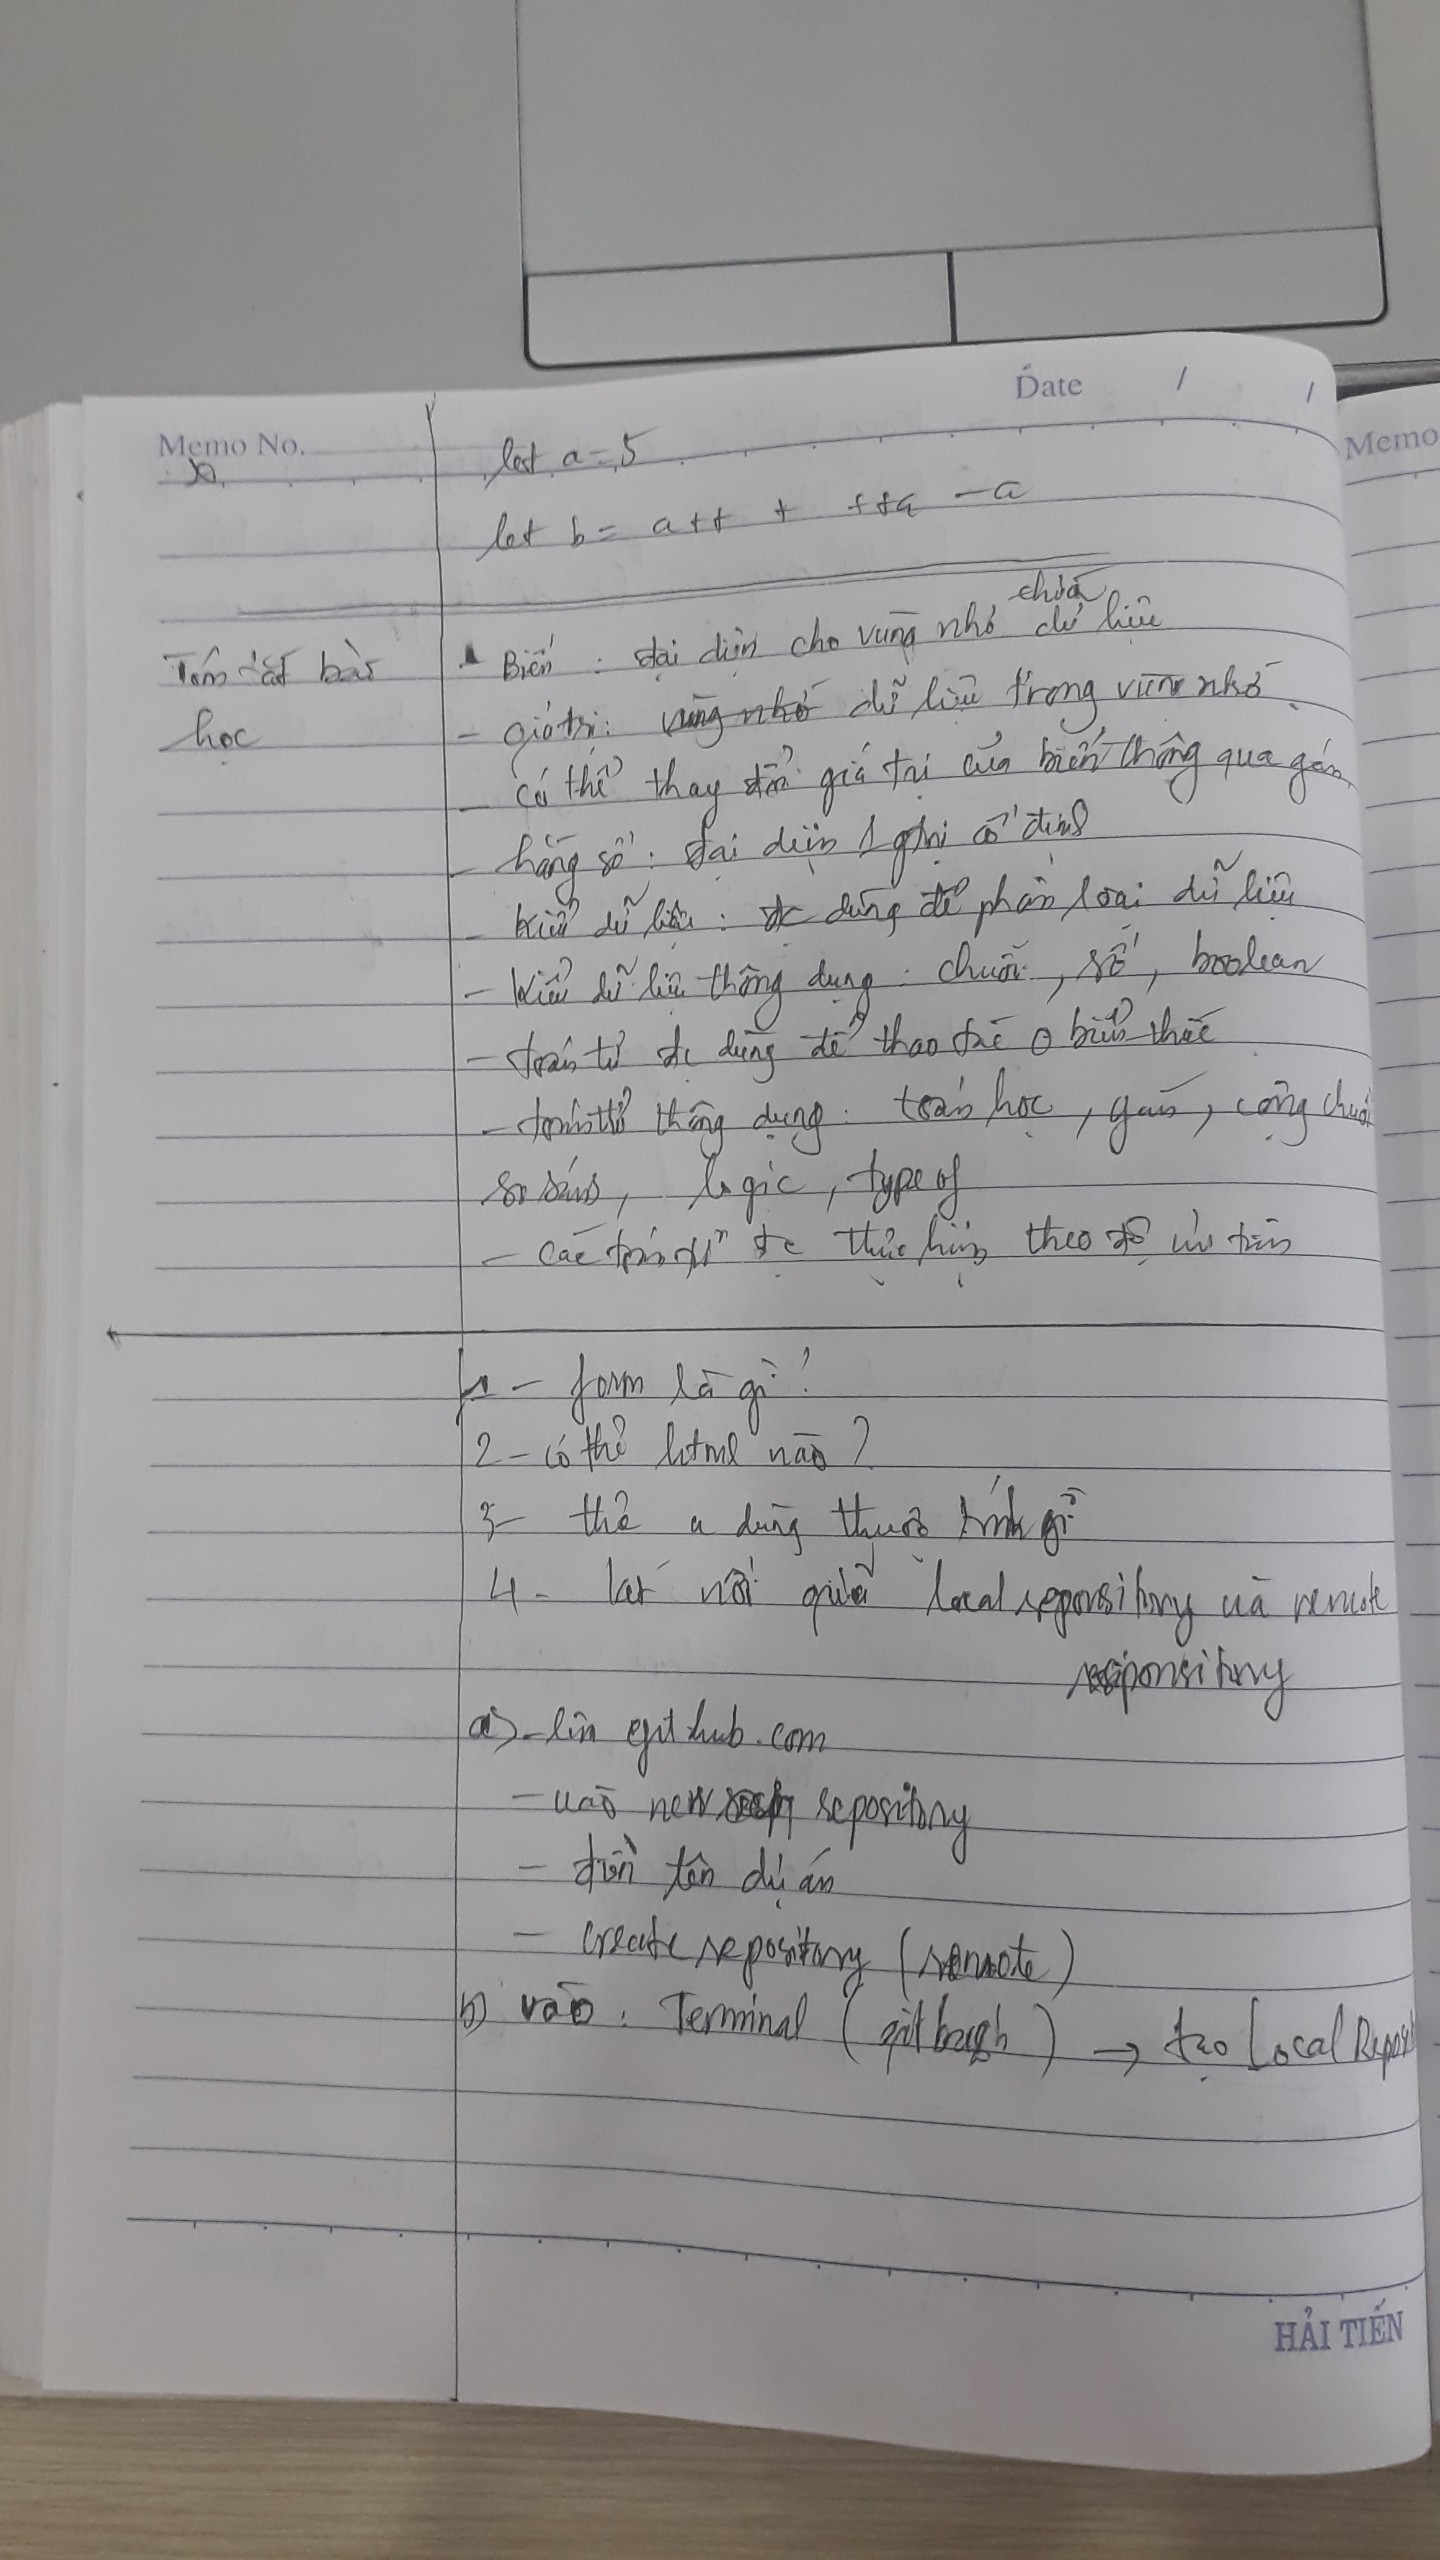 Date / /
Memo No.
Memo
let a = 5
let b = a++ + ++a - a
Tóm tắt bài
học
Biến : đại diện cho vùng nhớ chứa dữ liệu
- giá trị : vùng nhớ dữ liệu trong vùng nhớ
- có thể thay đổi giá trị của biến thông qua gán
- hằng số : đại diện 1 gtrị cố định
- kiểu dữ liệu : đc dùng để phân loại dữ liệu
- kiểu dữ liệu thông dụng : chuỗi, số, boolean
- toán tử đc dùng để thao tác biểu thức
- toán tử thông dụng : toán học, gán, cộng chuỗi
so sánh, logic, type of
- các toán tử đc thực hiện theo độ ưu tiên
1 - form là gì ?
2 - có thẻ html nào ?
3 - thẻ a dùng thuộc tính gì
4 - kết nối giữa local reponsitory và remote
responsitory
a) - lên github.com
- vào new repository
- điền tên dự án
- create repository (remote)
b) vào : Terminal (git bash) → tạo Local Reposi
HẢI TIẾN